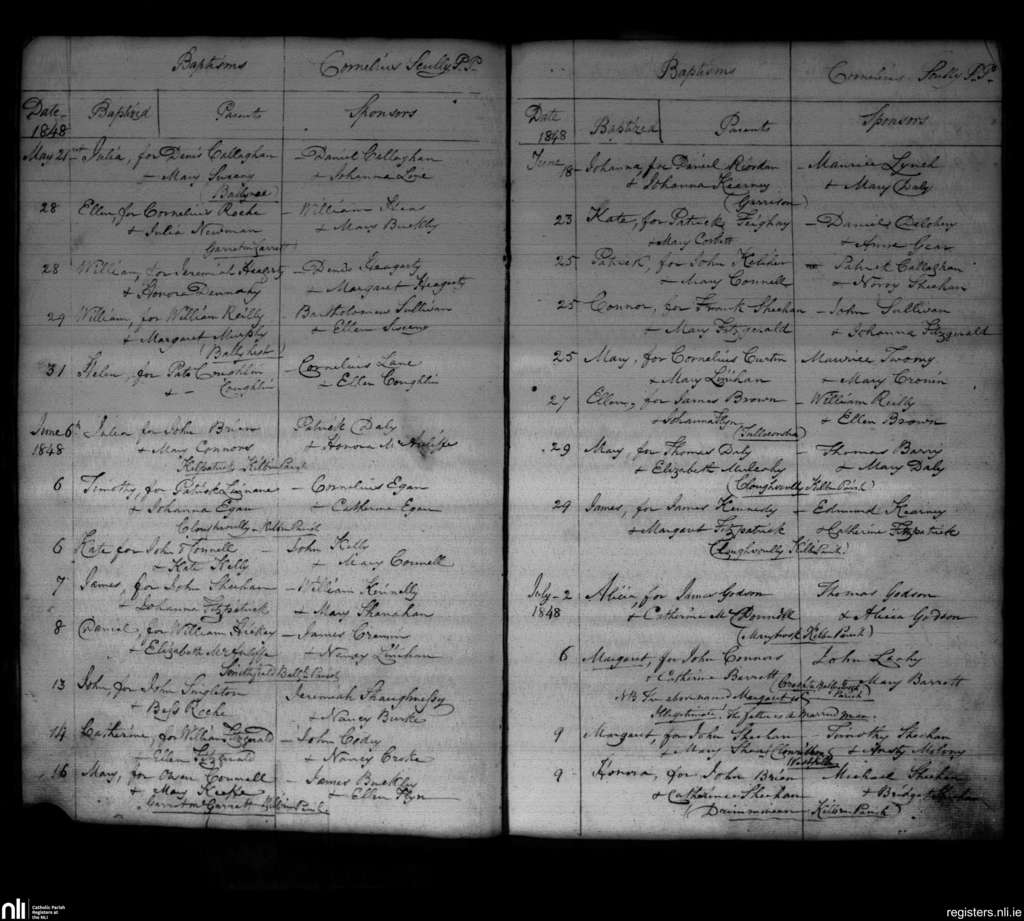 Baptisms Cornelius Scully P.P.
Date 1848 Baptized Parents Sponsors
May 21st Julia, for Denis Callaghan – Daniel Callaghan
+ Mary Sweeny + Johanna Lane
28 Ellen, for Cornelius Roche – William Shea
+ Julia Newman + Mary Buckley
28 William, for Jeremiah Heagerty – Denis Heagerty
+ Honora Dennahy + Margaret Heagerty
29 William, for William Reilly – Bartholomew Sullivan
+ Margaret Murphy + Ellen Sweeny
31 Helen, for Patk Coughlin – Cornelius Lane
+ – Coughlin + Ellen Coughlin
June 6th Julia for John Brien Patrick Daly
1848 + Mary Connors + Honora Mc Auliffe
Kilpatrick Kilbrin Parish
6 Timothy, for Patrick – Cornelius Egan
+ Johanna Egan + Catherine Egan
Kilbrin Parish
6 Kate for John O'Connell – John Kelly
+ Kate Kelly + Mary Connell
7 James, for John Sheehan – William Kennelly
+ Johanna Fitzpatrick + Mary Shanahan
8 Daniel, for William Hickey – James Cremin
+ Elizabeth McAuliffe + Nancy Linehan
Smithfield Parish
13 John, for John Singleton Jeremiah Shaughnessy
+ Bess Roche + Nancy Burke
14 Catherine, for William Fitzgerald – John Cody
+ Ellen Fitzgerald + Nancy Croke
16 Mary, for Owen Connell – James Buckley
+ Mary Keeffe + Ellen Flyn
Garrett Kilbrin Parish
Baptisms Cornelius Scully P.P.
Date 1848 Baptized Parents Sponsors
June 18 – Johanna, for Daniel Riordan – Maurice Lynch
+ Johanna Kearney + Mary Daly
(Garrison)
23 Kate, for Patrick Feighny – Daniel
+ Mary Corbett + Anne Gear
25 Patrick, for John Keliher – Patrick Callaghan
+ Mary Connell + Norry Sheehan
25 Connor, for Frank Sheehan – John Sullivan
+ Mary Fitzgerald + Johanna Fitzgerald
25 Mary, for Cornelius Curtin Maurice Twomy
+ Mary Linehan + Mary Cronin
27 Ellen, for James Brown – William Reilly
+ Johanna Flyn + Ellen Brown
29 Mary, for Thomas Daly – Thomas Barry
+ Elizabeth Mulcahy + Mary Daly
(Cloughvoully Kilbrin Parish)
29 James, for James Kennedy – Edmund Kearney
+ Margaret Fitzpatrick + Catherine Fitzpatrick
(Cloughvoully Kilbrin Parish)
July – 2 Alicia for James Godson Thomas Godson
1848 + Catherine McDonnell + Alicia Godson
(Marybrook Kilbn Parish)
6 Margaret, for John Connors John Leahy
+ Catherine Barrett Mary Barrett
NB The abovenamed Margaret is
Illegitimate. The father is a married man.
9 Margaret, for John – Timothy Sheehan
+ Mary Shea +
9 Honora, for John Brien Michael Sheehan
+ Catherine Sheehan + Bridget Sheehan
Kilbrin Parish)
nli Catholic Parish
Registers at
the NLI
registers.nli.ie